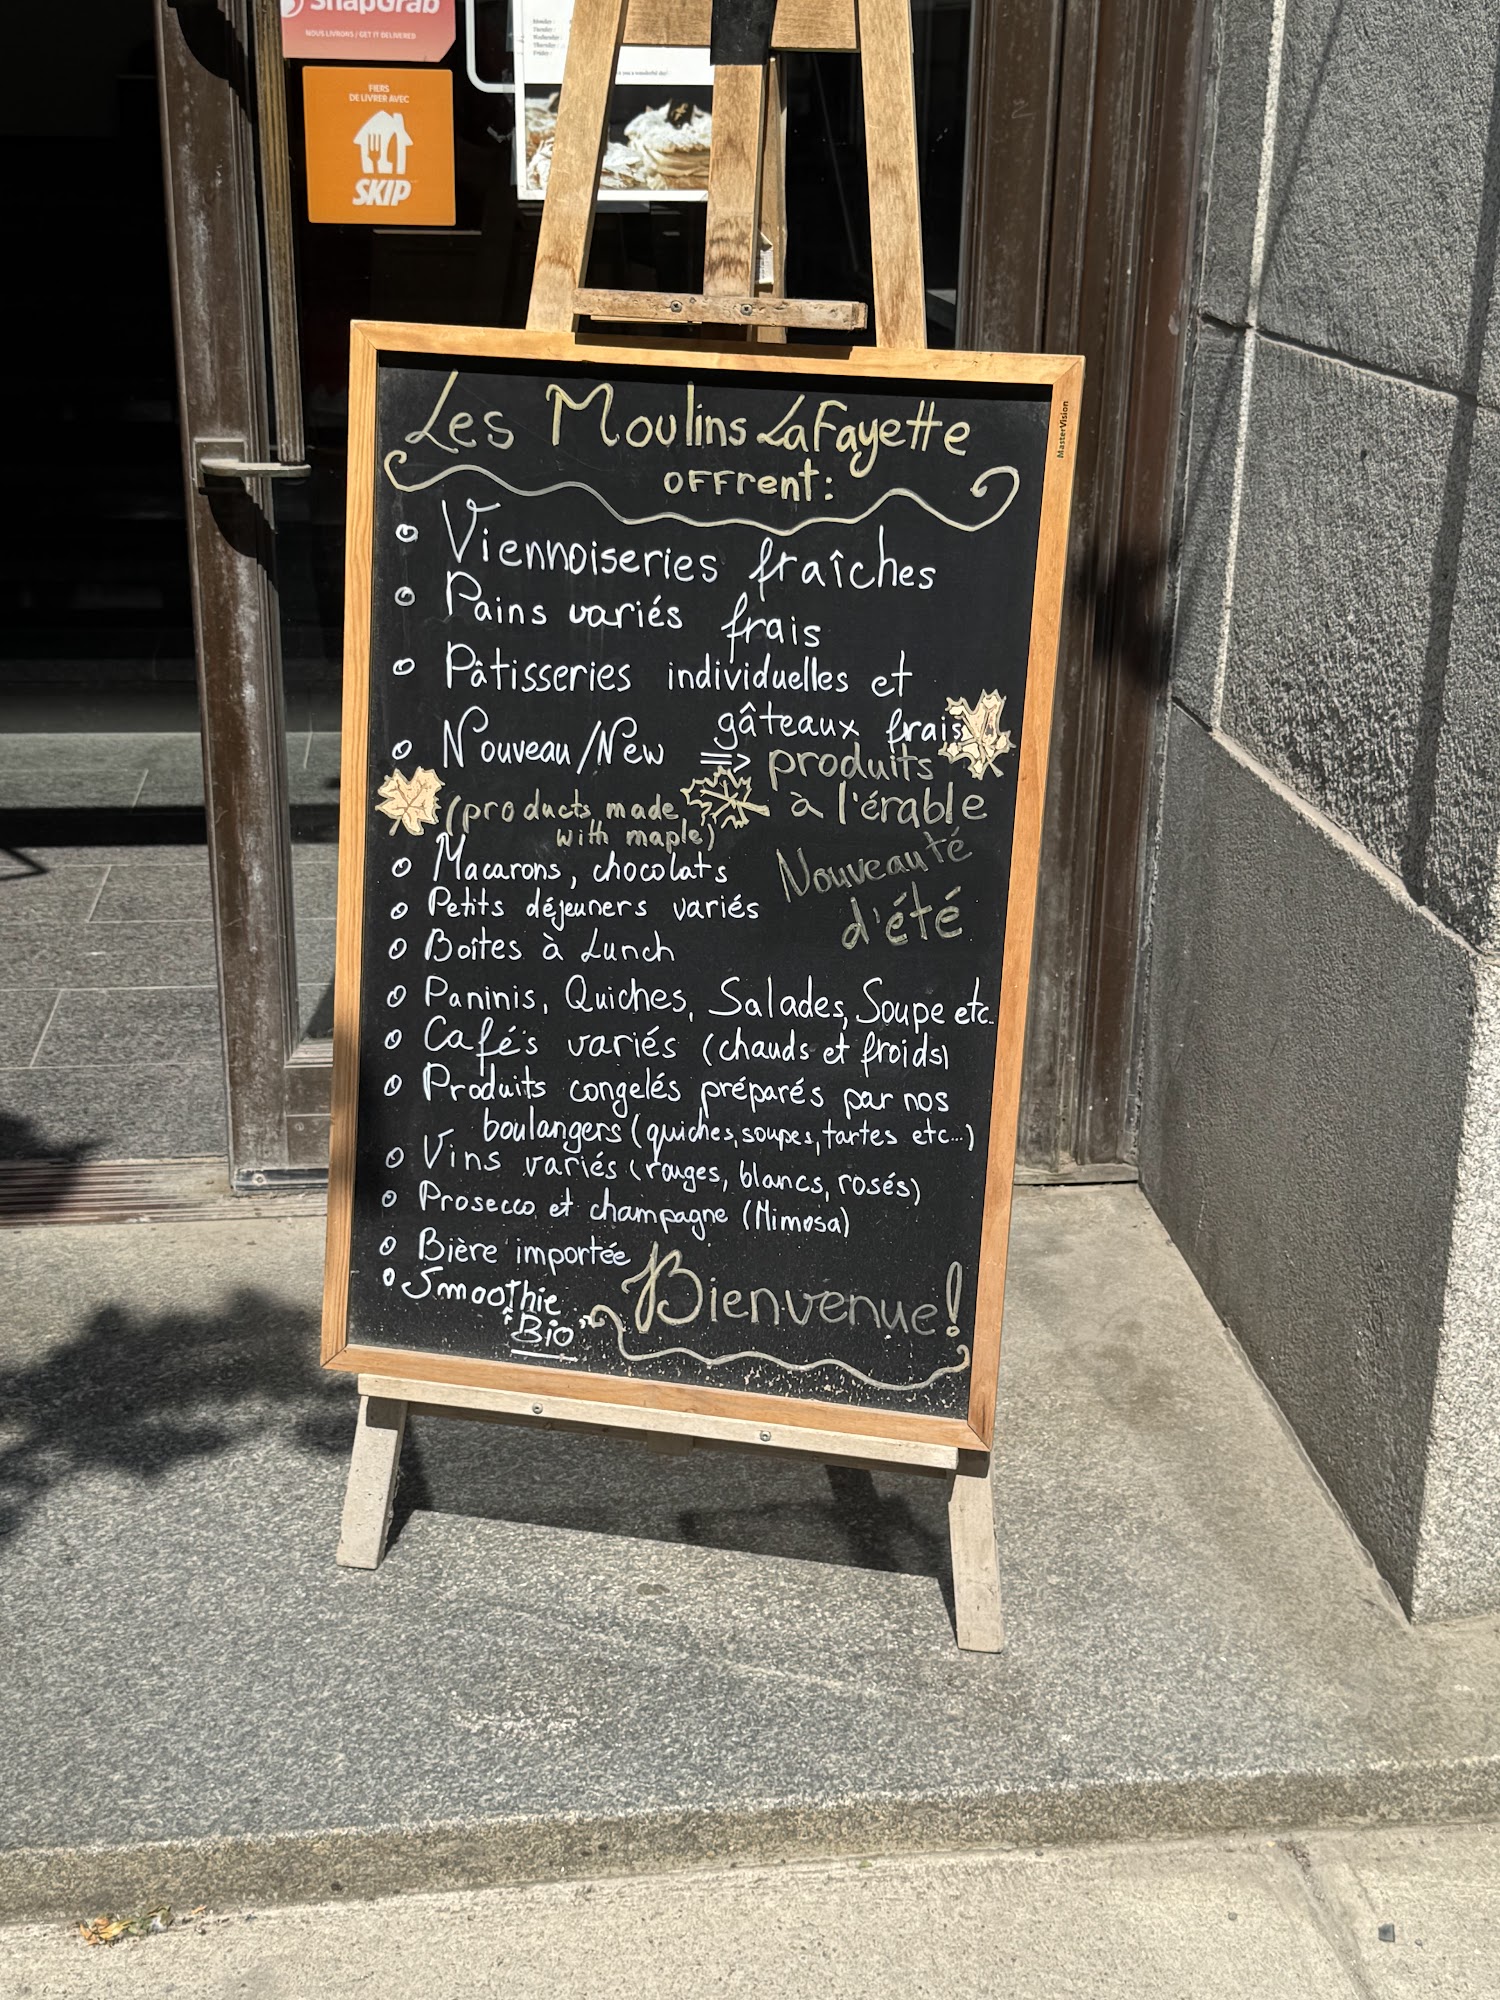 SnapGrab
NOUS LIVRONS / GET IT DELIVERED
FIERS
DE LIVRER AVEC
SKIP
MasterVision
Les Moulins LaFayette
offrent:
Viennoiseries fraîches
Pains variés frais
Pâtisseries individuelles et
gâteaux frais
Nouveau/New => produits
à l'érable
(products made
with maple)
Nouveauté
d'été
Macarons, chocolats
Petits déjeuners variés
Boîtes à Lunch
Paninis, Quiches, Salades, Soupe etc.
Cafés variés (chauds et froids)
Produits congelés préparés par nos
boulangers (quiches, soupes, tartes etc...)
Vins variés (rouges, blancs, rosés)
Prosecco et champagne (Mimosa)
Bière importée
Smoothie
"Bio"
Bienvenue!